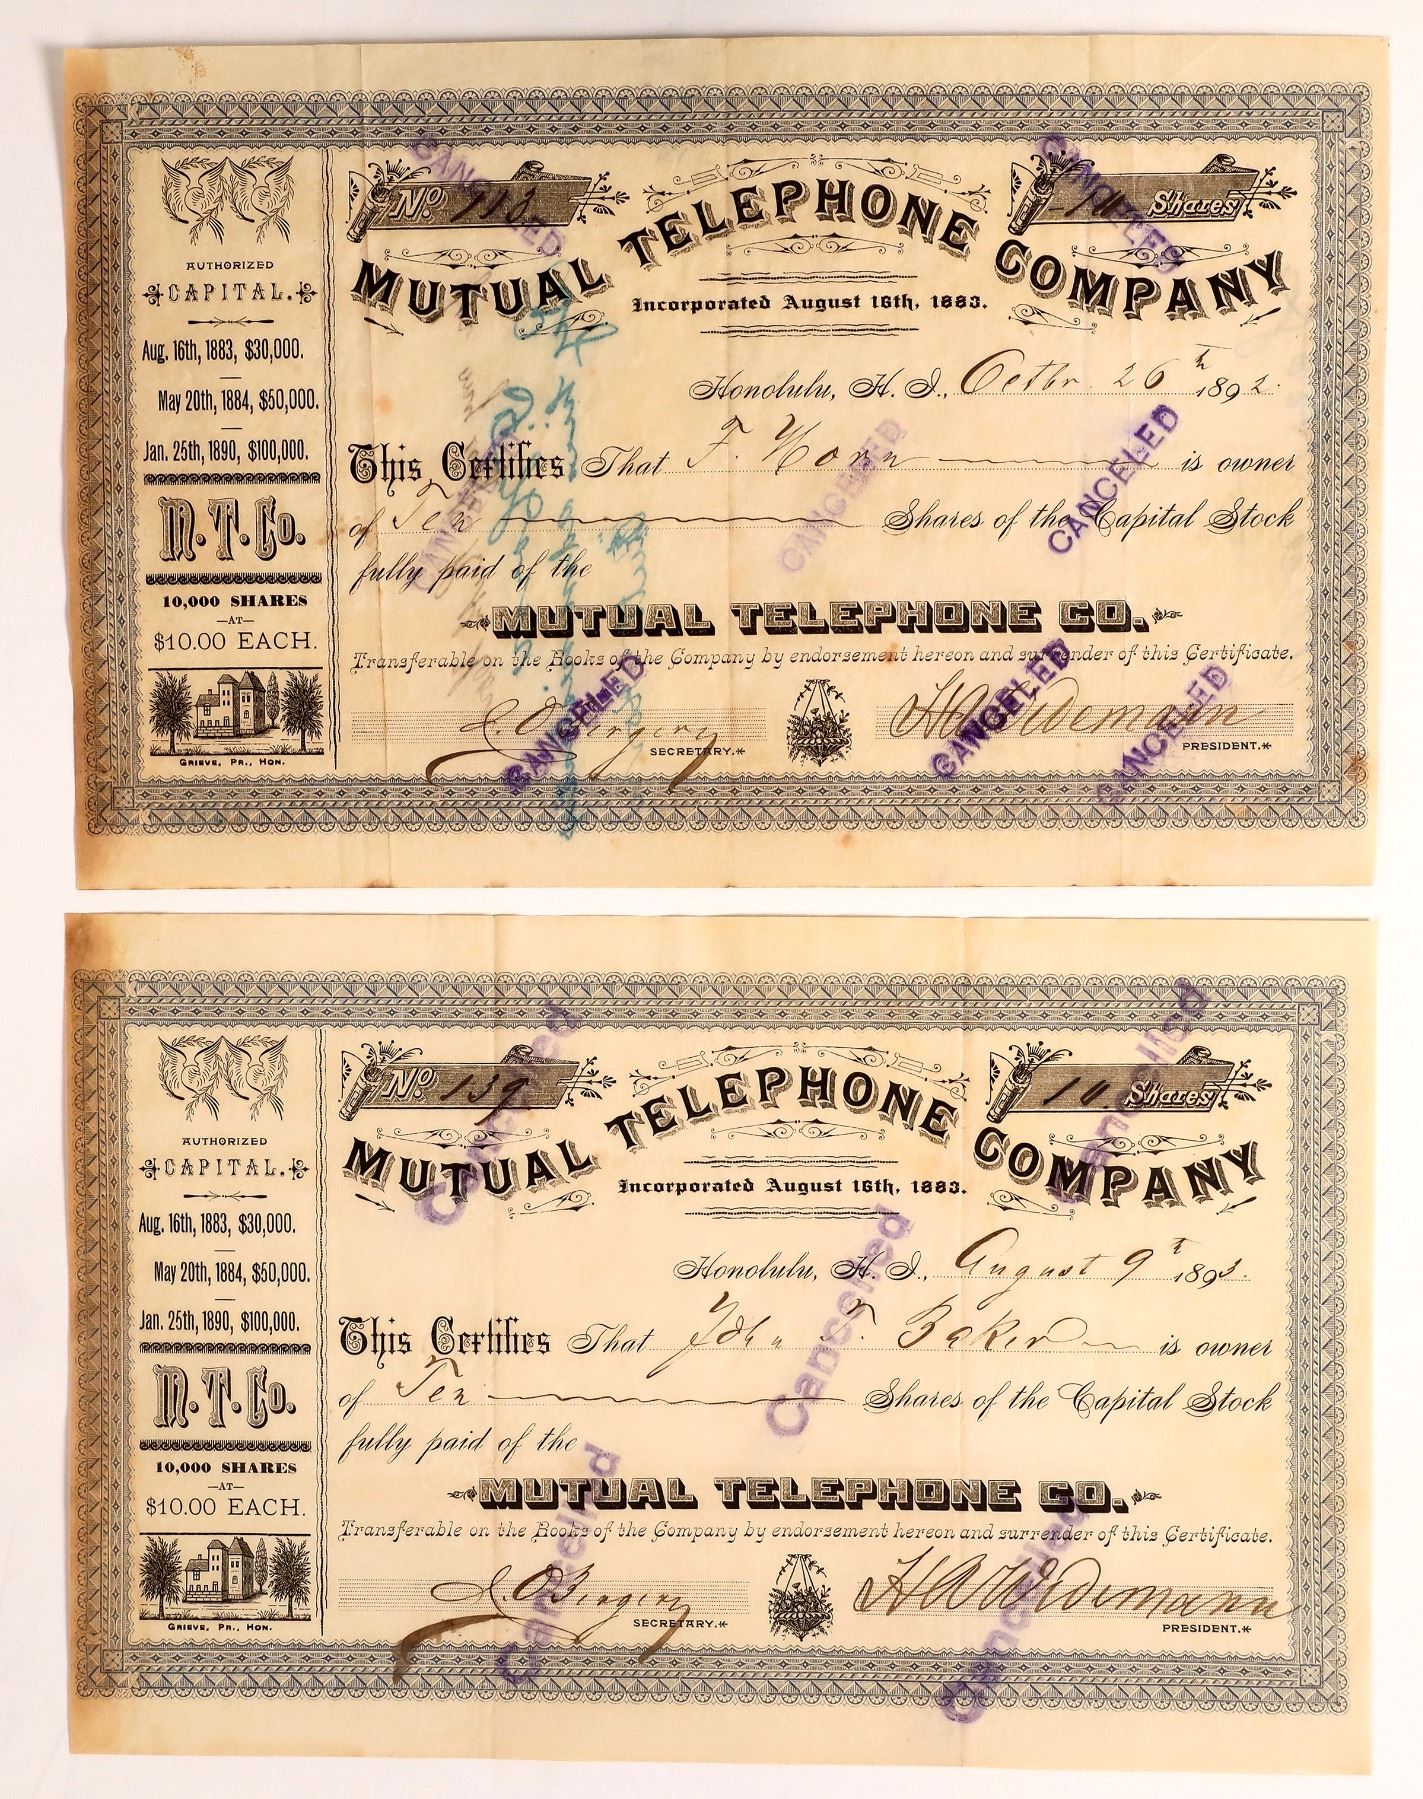 AUTHORIZED
CAPITAL.
Aug. 16th, 1883, $30,000.
May 20th, 1884, $50,000.
Jan. 25th, 1890, $100,000.
M. T. Co.
10,000 SHARES
—AT—
$10.00 EACH.
GRIEVE, PR., HON.
No. 113
10 Shares
MUTUAL TELEPHONE COMPANY
Incorporated August 16th, 1883.
Honolulu, H. I., Octbr. 26th 1892.
This Certifies That F. Horn is owner
of Ten Shares of the Capital Stock
fully paid of the
MUTUAL TELEPHONE CO.
Transferable on the Books of the Company by endorsement hereon and surrender of this Certificate.
SECRETARY.
PRESIDENT.
CANCELED
CANCELED
CANCELED
CANCELED
CANCELED
CANCELED
CANCELED
CANCELED
AUTHORIZED
CAPITAL.
Aug. 16th, 1883, $30,000.
May 20th, 1884, $50,000.
Jan. 25th, 1890, $100,000.
M. T. Co.
10,000 SHARES
—AT—
$10.00 EACH.
GRIEVE, PR., HON.
No. 139
10 Shares
MUTUAL TELEPHONE COMPANY
Incorporated August 16th, 1883.
Honolulu, H. I., August 9th 1893.
This Certifies That John T. Baker is owner
of Ten Shares of the Capital Stock
fully paid of the
MUTUAL TELEPHONE CO.
Transferable on the Books of the Company by endorsement hereon and surrender of this Certificate.
SECRETARY.
PRESIDENT.
Cancelled
Cancelled
Cancelled
Cancelled
Cancelled